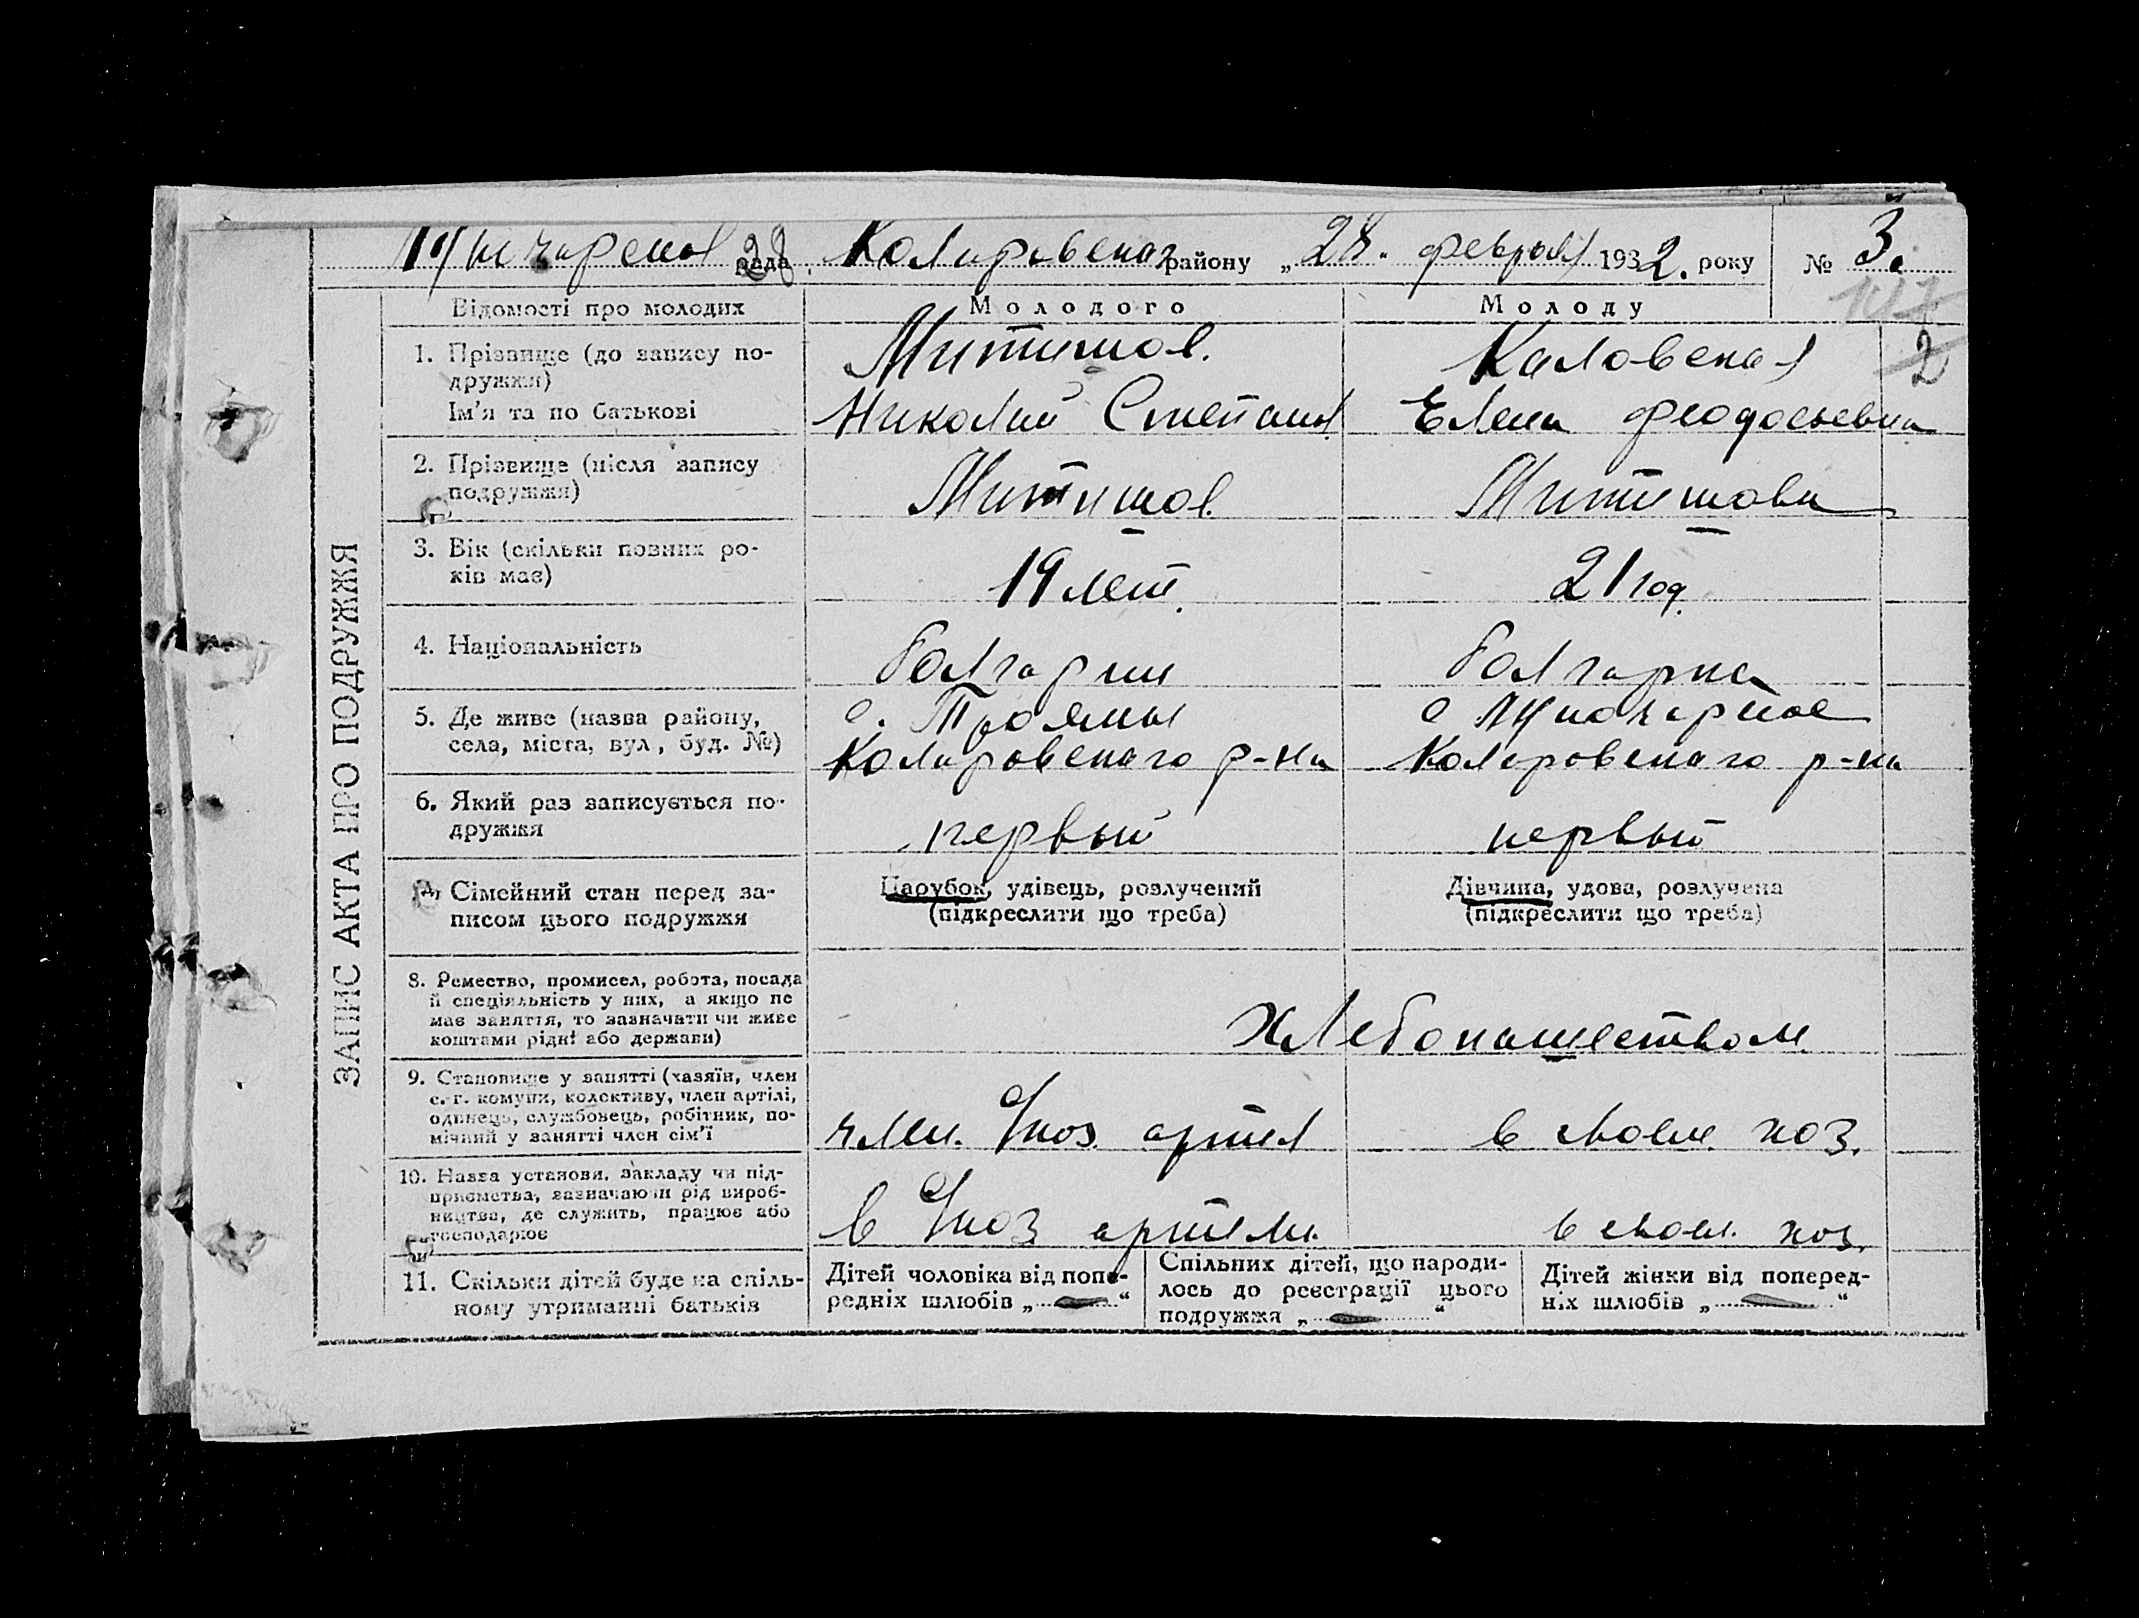 Луначарская рада Коларовская району „28. февраля 1932. року № 3.
2
ЗАПИС АКТА ПРО ПОДРУЖЖЯ
Відомості про молодих
Молодого
Молоду
1. Прізвище (до запису по-
дружжя)
Ім'я та по батькові
Митишов.
Николай Степанов.
Каловская
Елена Феодосьевна
2. Прізвище (після запису
подружжя)
Митишов.
Митишова
3. Вік (скільки повних ро-
ків має)
19 лет.
21 год.
4. Національність
болгарин
болгарка
5. Де живе (назва району,
села, міста, вул, буд. №)
с. Трояны
Коларовского р-на
с Луначарское
Коларовского р-на
6. Який раз записується по-
дружжя
первый
первый
Сімейний стан перед за-
писом цього подружжя
Парубок, удівець, розлучений
(підкреслити що треба)
Дівчина, удова, розлучена
(підкреслити що треба)
8. Ремество, промисел, робота, посада
й спеціяльність у них, а якщо не
має заняття, то зазначати чи живе
коштами рідні або держави)
Хлебопашеством
9. Становище у занятті (хазяїн, член
с.-г. комуни, колективу, член артілі,
одинець, службовець, робітник, по-
мічний у занятті член сім'ї
член. с/хоз. артел
в своем хоз.
10. Назва установи, закладу чи під-
приємства, зазначаючи рід вироб-
ництва, де служить, працює або
господарює
в с/хоз артели.
в своем. хоз.
11. Скільки дітей буде на спіль-
ному утриманні батьків
Дітей чоловіка від попе-
редніх шлюбів „ — “
Спільних дітей, що народи-
лось до реєстрації цього
подружжя „ — “
Дітей жінки від поперед-
ніх шлюбів „ — “